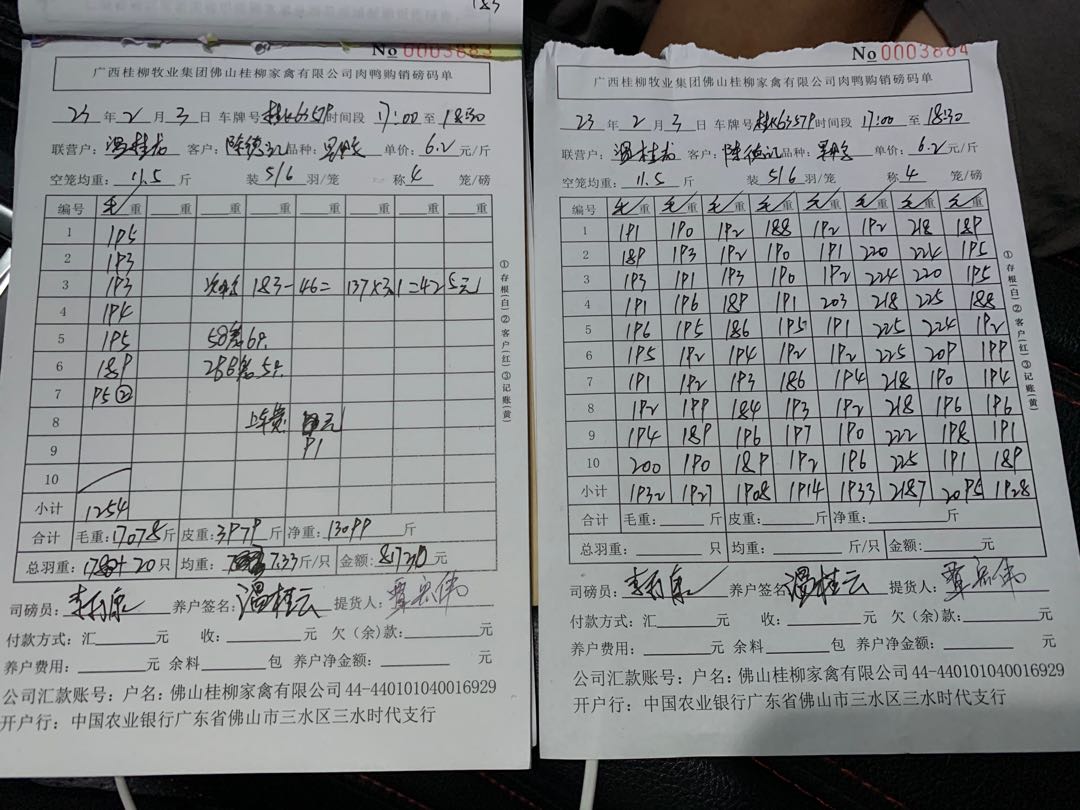 183
No 0003883
广西桂柳牧业集团佛山桂柳家禽有限公司肉鸭购销磅码单
23 年 2 月 3 日 车牌号 桂K6357P 时间段 17:00 至 18:30
联营户: 温桂云 客户: 陈德记 品种: 单价: 6.2 元/斤
空笼均重: 11.5 斤 装 5/6 羽/笼 称 4 笼/磅
编号 毛重 重 重 重 重 重 重 重
1 195
2 193
3 193 183-46= 137×3.1=425元
4 194
5 195 50 6只
6 189 288 5只
7 95②
8 上车费 元
9 91
10
小计 1254
合计 毛重: 17078 斤 皮重: 3979 斤 净重: 13099 斤
总羽重: +20 只 均重: 7.33 斤/只 金额: 元
司磅员: 养户签名: 温桂云 提货人:
付款方式: 汇 元 收: 元 欠(余)款: 元
养户费用: 元 余料 包 养户净金额: 元
公司汇款账号: 户名: 佛山桂柳家禽有限公司 44-440101040016929
开户行: 中国农业银行广东省佛山市三水区三水时代支行
①存根(白)②客户(红)③记账(黄)
No 0003884
广西桂柳牧业集团佛山桂柳家禽有限公司肉鸭购销磅码单
23 年 2 月 3 日 车牌号 桂K6357P 时间段 17:00 至 18:30
联营户: 温桂云 客户: 陈德记 品种: 单价: 6.2 元/斤
空笼均重: 11.5 斤 装 5/6 羽/笼 称 4 笼/磅
编号 毛重 毛重 毛重 毛重 毛重 毛重 毛重 毛重
1 191 190 192 188 192 192 218 189
2 189 193 192 190 191 220 224 195
3 193 191 193 190 192 224 220 195
4 191 196 189 191 203 218 225 188
5 196 195 186 195 191 225 224 192
6 195 192 194 192 192 225 209 199
7 191 192 193 186 194 218 190 194
8 192 199 184 193 192 218 196 196
9 194 189 196 197 190 222 198 191
10 200 190 189 192 196 225 191 189
小计 1932 1927 1908 1914 1933 2187 2095 1928
合计 毛重: 斤 皮重: 斤 净重: 斤
总羽重: 只 均重: 斤/只 金额: 元
司磅员: 养户签名: 温桂云 提货人:
付款方式: 汇 元 收: 元 欠(余)款: 元
养户费用: 元 余料 包 养户净金额: 元
公司汇款账号: 户名: 佛山桂柳家禽有限公司 44-440101040016929
开户行: 中国农业银行广东省佛山市三水区三水时代支行
①存根(白)②客户(红)③记账(黄)